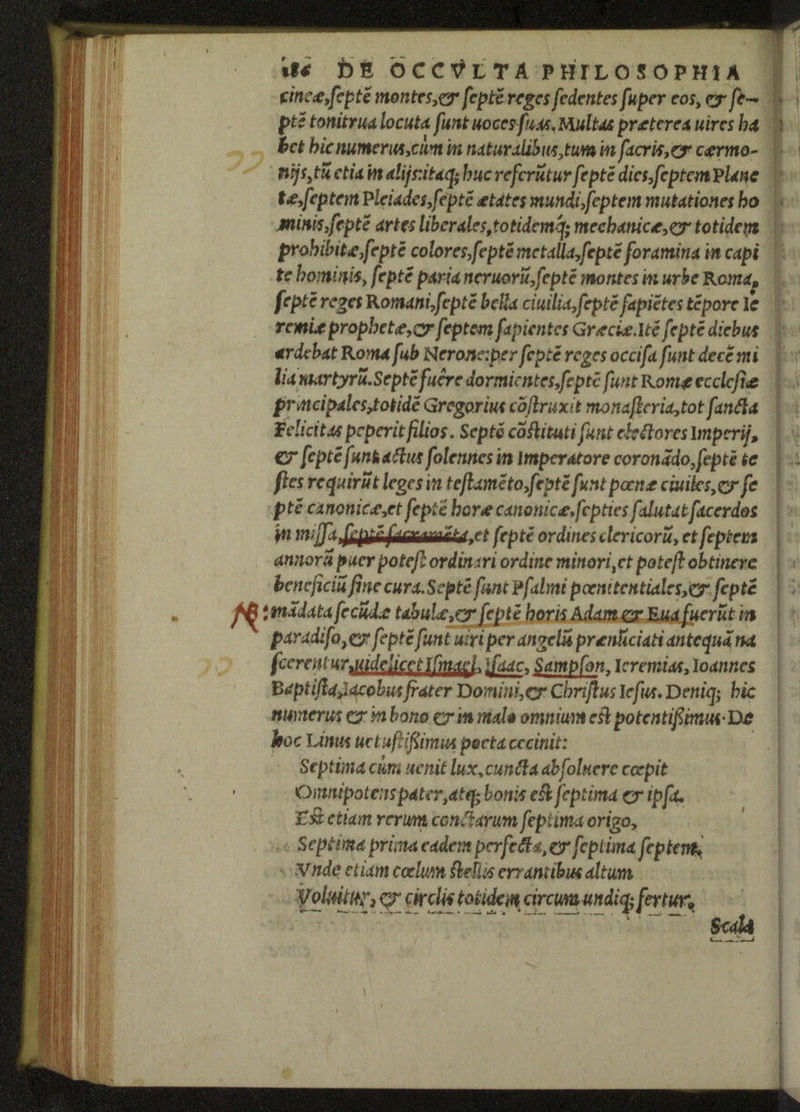 186 DE OCCVLTA PHILOSOPHIA
cineæ,ſeptē montes,& ſeptē reges ſedentes ſuper eos, & ſe-
ptē tonitrua locuta ſunt uoces ſuas. Multas præterea uires ha
bet hic numerus,cùm in naturalibus,tum in ſacris,& cærmo-
nijs,tū etia in alijs:itaq; huc referūtur ſeptē dies,ſeptem Plane
tæ,ſeptem Pleiades,ſeptē ætates mundi,ſeptem mutationes ho
minis,ſeptē artes liberales,totidemq́; mechanicæ,& totidem
prohibitæ,ſeptē colores,ſeptē metalla,ſeptē foramina in capi
te hominis, ſeptē paria neruorū,ſeptē montes in urbe Roma,
ſeptē reges Romani,ſeptē bella ciuilia,ſeptē ſapiētes tēpore Ie
remiæ prophetæ,& ſeptem ſapientes Græciæ.Itē ſeptē diebus
ardebat Roma ſub Nerone:per ſeptē reges occiſa ſunt decē mi
lia martyrū.Septē fuêre dormientes,ſeptē ſunt Romæ eccleſiæ
principales,totidē Gregorius cōſtruxit monaſteria,tot ſancta
Felicitas peperit filios. Septē cōſtituti ſunt electores Imperij,
& ſeptē ſunt actus ſolennes in Imperatore coronādo,ſeptē te
ſtes requirūt leges in teſtamēto,ſeptē ſunt pœnæ ciuiles,& ſe
ptē canonicæ,et ſeptē horæ canonicæ,ſepties ſalutat ſacerdos
in miſſa,ſeptē ſacramēta,et ſeptē ordines clericorū, et ſeptem
annorū puer poteſt ordinari ordine minori,et poteſt obtinere
beneficiū ſine cura.Septē ſunt Pſalmi pœnitentiales,& ſeptē
NB mādata ſecūdæ tabulæ,& ſeptē horis Adam & Eua fuerūt in
paradiſo,& ſeptē ſunt uiri per angelū prænūciati antequā na
ſcerentur,uidelicet Iſmael, Iſaac, Sampſon, Ieremias, Ioannes
Baptiſta,Iacobus frater Domini,& Chriſtus Ieſus. Deniq; hic
numerus & in bono & in malo omnium eſt potentiſsimus. De
hoc Linus uetuſtiſsimus poeta cecinit:
Septima cùm uenit lux,cuncta abſoluere cœpit
Omnipotens pater,atq; bonis eſt ſeptima & ipſa.
Eſt etiam rerum cunctarum ſeptima origo,
Septima prima eadem perfecta,& ſeptima ſeptem,
Vnde etiam cœlum ſtellis errantibus altum
Voluitur, & circlis totidem circum undiq; fertur.
Scala